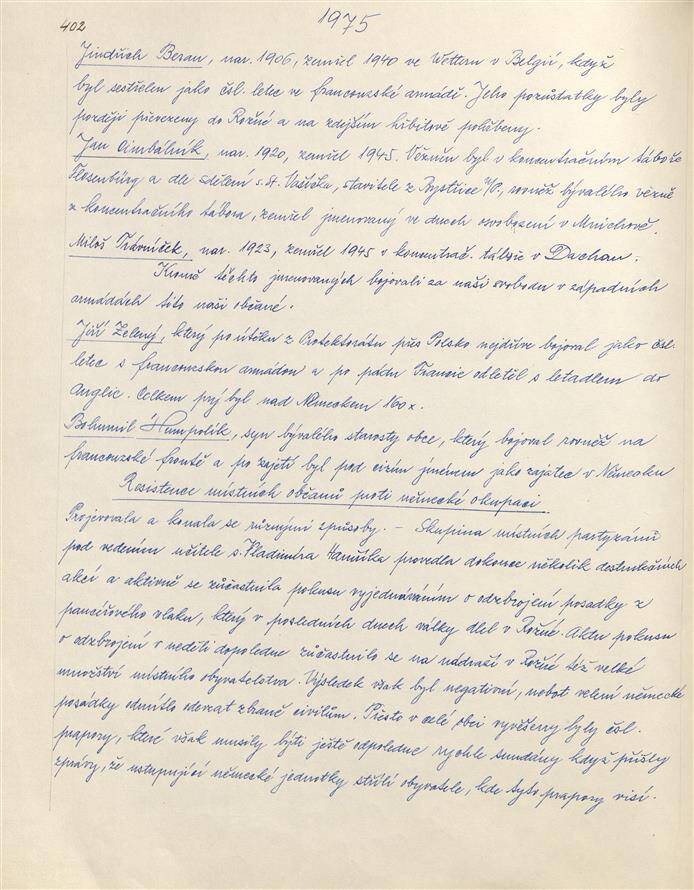 402
1975
Jindřich Beran, nar. 1906, zemřel 1940 ve Wettern v Belgii, když
byl sestřelen jako čsl. letec ve francouzské armádě. Jeho pozůstatky byly
později převezeny do Rožné a na zdejším hřbitově pohřbeny.
Jan Cimbálník, nar. 1920, zemřel 1945. Vězněn byl v koncentračním táboře
Flosenbürg a dle sdělení s. St. Vašíčka, stavitele z Bystřice n/P., rovněž bývalého vězně
z koncentračního tábora, zemřel jmenovaný ve dnech osvobození v Mnichově.
Miloš Trávníček, nar. 1923, zemřel 1945 v koncentrač. táboře v Dachau.
Kromě těchto jmenovaných bojovali za naši svobodu v západních
armádách tito naši občané.
Jiří Zelený, který po útěku z Protektorátu přes Polsko nejdříve bojoval jako čsl.
letec s francouzskou armádou a po pádu Francie odletěl s letadlem do
Anglie. Celkem prý byl nad Německem 160x.
Bohumil Humpolík, syn bývalého starosty obce, který bojoval rovněž na
francouzské frontě a po zajetí byl pod cizím jménem jako zajatec v Německu
Resistence místních občanů proti německé okupaci
Projevovala a konala se různými způsoby. – Skupina místních partyzánů
pod vedením učitele s. Vladimíra provedla dokonce několik destrukčních
akcí a aktivně se zúčastnila pokusu vyjednáváním o odzbrojení posádky z
pancéřového vlaku, který v posledních dnech války dlel v Rožné. Aktu pokusu
o odzbrojení v neděli dopoledne zúčastnilo se na nádraží v Rožné též velké
množství místního obyvatelstva. Výsledek však byl negativní, neboť velení německé
posádky odmítlo odevzat zbraně civilům. Přesto v celé obci vyvěšeny byly čsl.
prapory, které však musily býti ještě odpoledne rychle sundány když přišly
zprávy, že ustupující německé jednotky střílí obyvatele, kde tyto prapory visí.